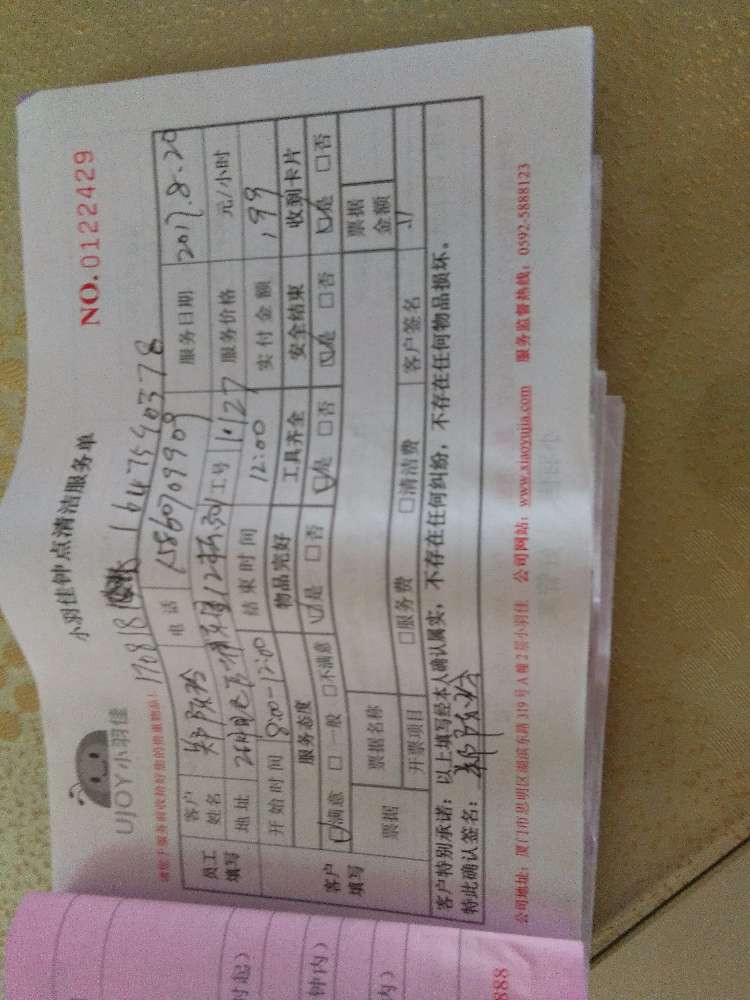 UJOY小羽佳
小羽佳钟点清洁服务单
NO.0122429
请您于服务前收拾好您的贵重物品!
员工填写
客户姓名 电话 服务日期 2017.8.20
地址 工号 服务价格 元/小时
开始时间 8:00-12:00 结束时间 12:00 实付金额 199
客户填写
服务态度 物品完好 工具齐全 安全结束 收到卡片
☑满意 □一般 □不满意 ☑是 □否 ☑是 □否 ☑是 □否 ☑是 □否
票据 票据名称 票据金额
开票项目 □服务费 □清洁费 客户签名
客户特别承诺:以上填写经本人确认属实,不存在任何纠纷,不存在任何物品损坏。
特此确认签名:
公司地址:厦门市思明区湖滨东路319号A幢2层小羽佳 公司网站:www.xiaoyujia.com 服务监督热线:0592-5888123
时起)
钟内)
内)
888